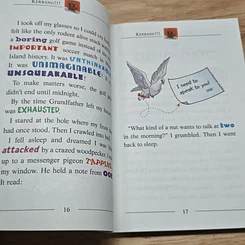 KERRANG!!!
I took off my glasses so I could
felt like the only rodent alive stuck
a boring golf game instead of
IMPORTANT soccer match
Island history. It was UNTHINKABLE
It was UNIMAGINABLE
UNSQUEAKABLE!
To make matters worse, the golf
didn't end until midnight.
By the time Grandfather left my
was EXHAUSTED
I stared at the hole where my front
had once stood. Then I crawled into
I fell asleep and dreamed I was
attacked by a crazed woodpecker.
up to a messenger pigeon TAPPING
my window. He held a note from
It read:
16
KERRANG!!!
I need to
speak to you!
"What kind of a nut wants to talk at two
in the morning?" I grumbled. Then I went
back to sleep.
17